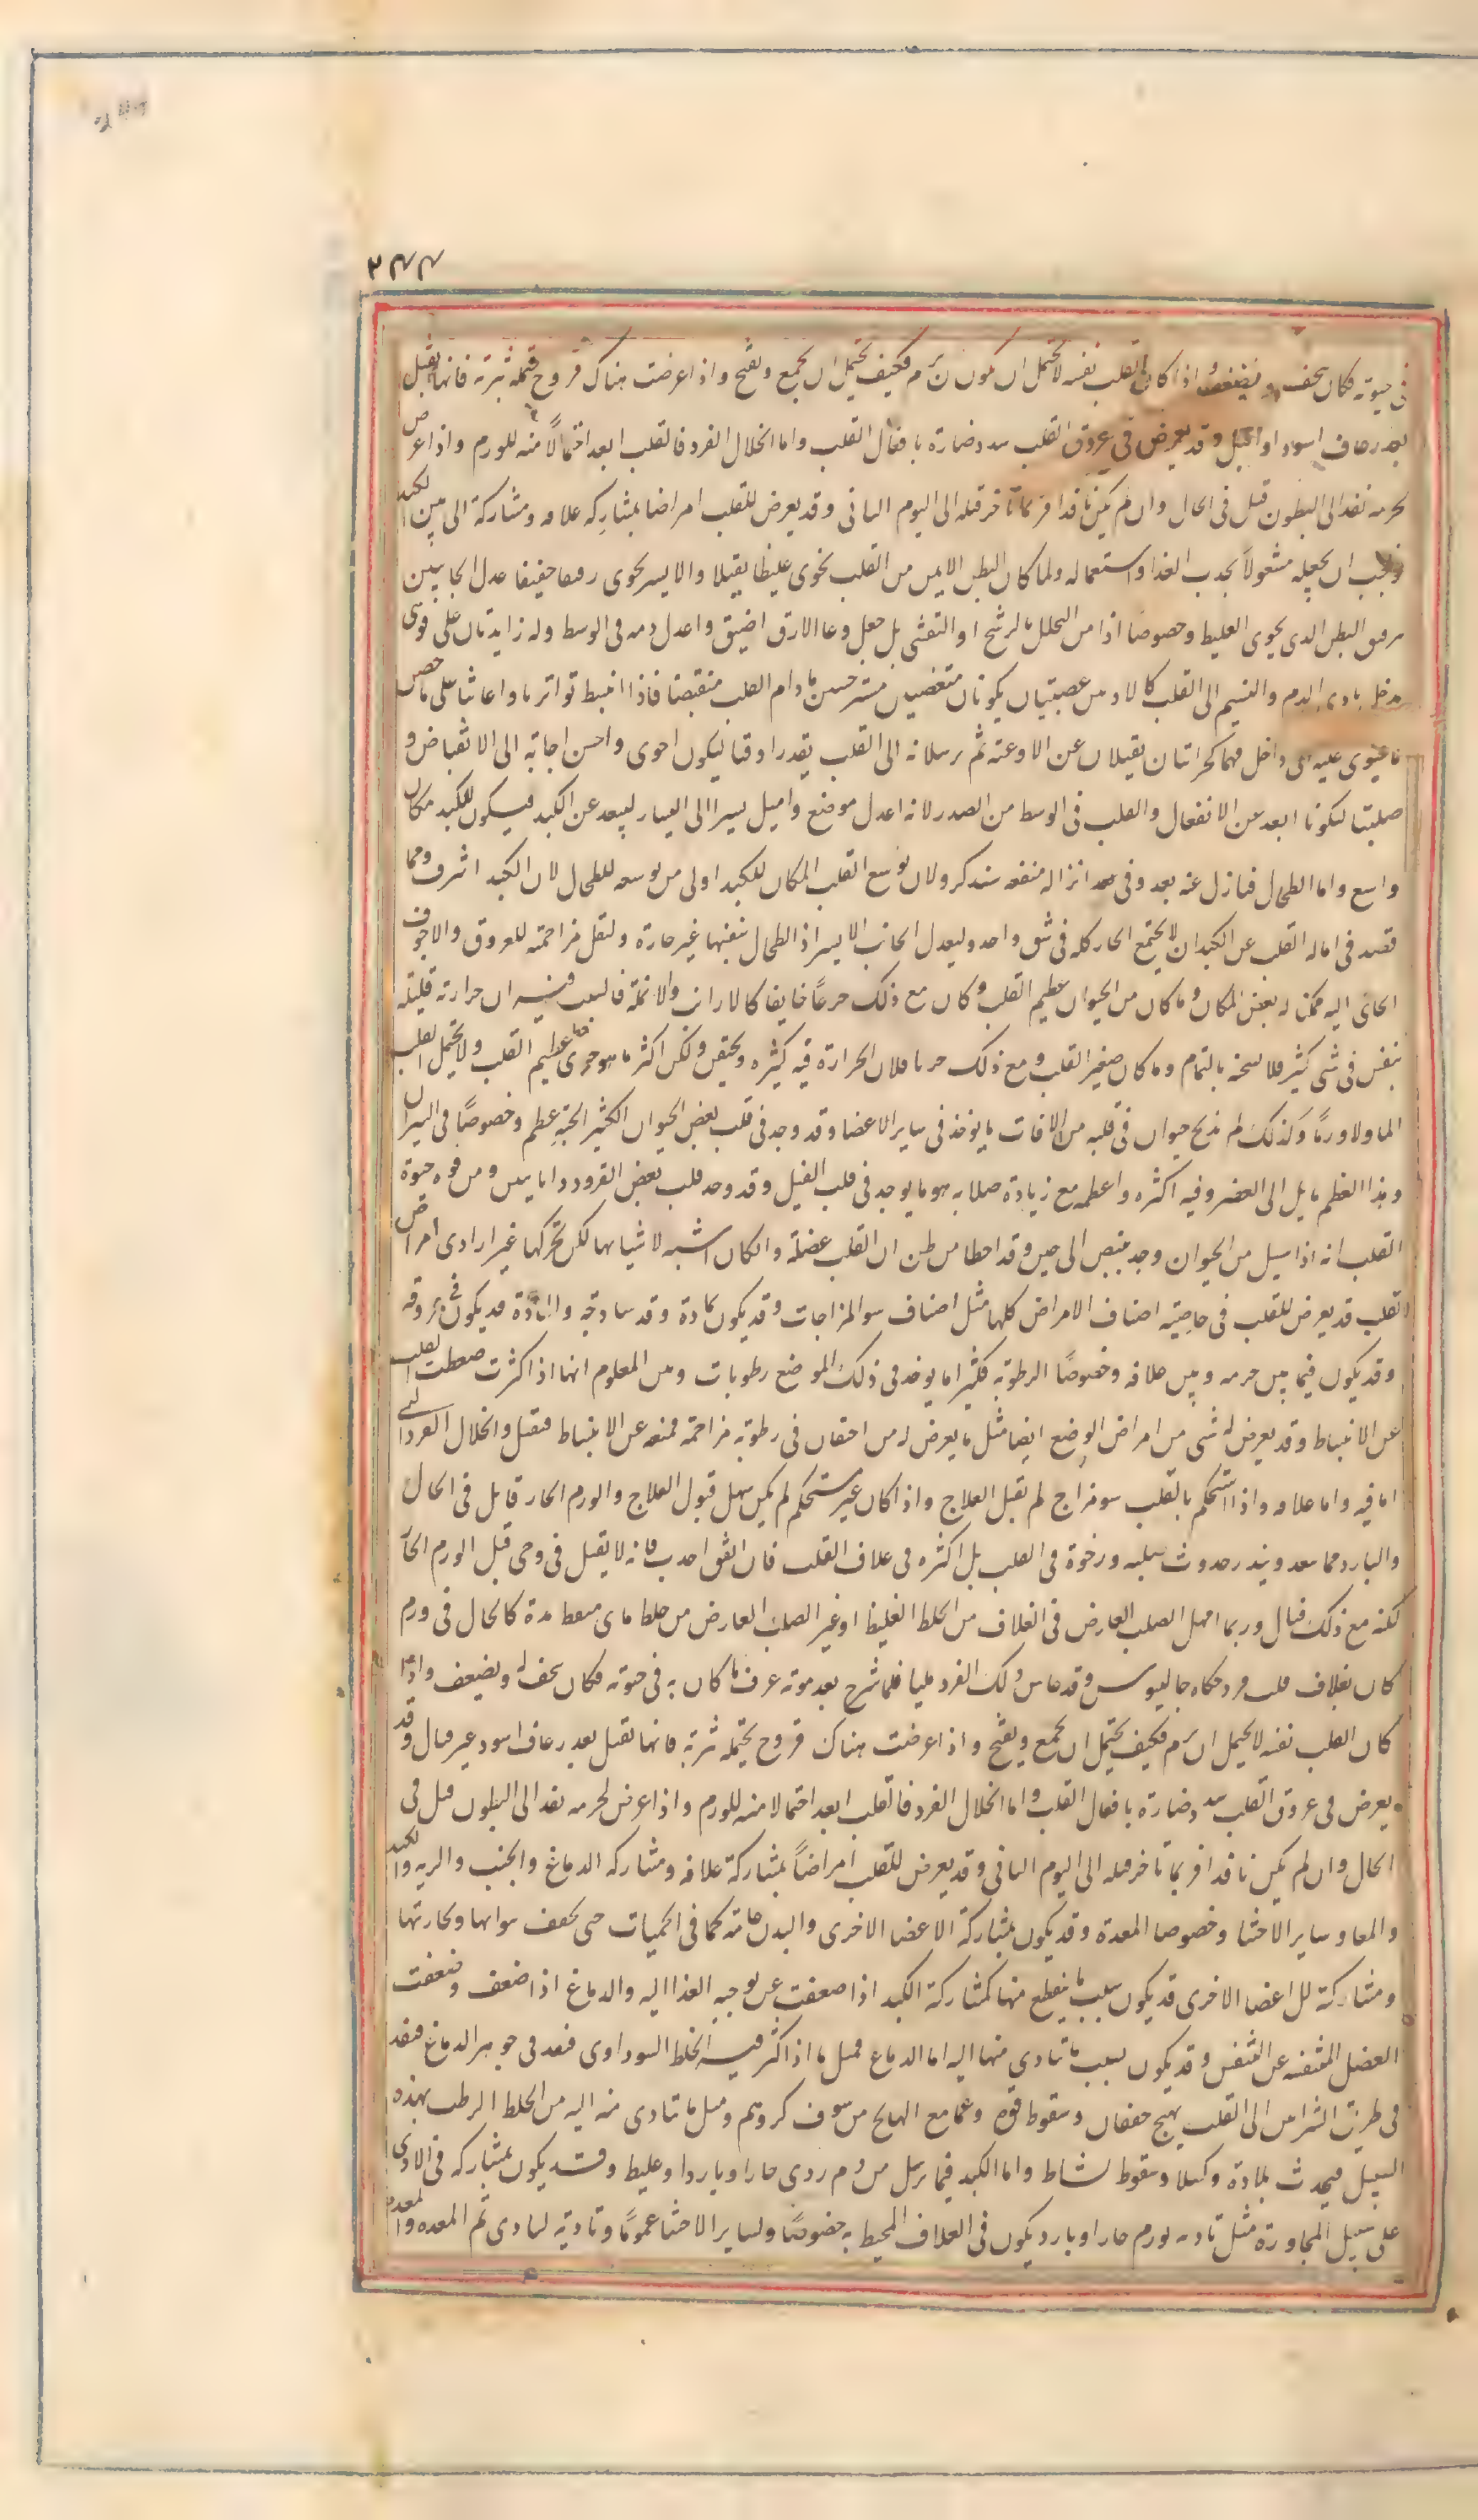 ٣٤٤
فى حيوته فكان يخف و يضعف و اذا كان القلب نفسه لا يحتمل ان يكون ان يرم فكيف يحتمل ان يجمع و يقيح و اذا عرضت هناك قروح قتلة ثبرته فانها يقتل
بعد رعاف اسود او اقيل و قد يعرض فى عروق القلب سدد ضارة بافعال القلب و اما انحلال الفرد فالقلب ابعد احتمالًا منه للورم و اذا عرض
لجرمه نفذ الى البطون قتل فى الحال و ان لم يكن نافذا فربما تاخر قتله الى اليوم الثانى و قد يعرض للقلب امراضا بمشاركه غلافه و مشاركة الى بين الكبد
فوجب ان يجعله مشغولًا بجذب الغذا و استعماله و لما كان البطن الايمن من القلب يحوى غليظا ثقيلا و الايسر يحوى رقيقا خفيفا عدل الجانبين
البطن الذى يحوى الغليظ و خصوصا اذا من التحلل بالرشح او التفشى بل جعل وعا الارق اضيق و اعدل دمه فى الوسط و له زايدتان على فوتى
مدخل بادى الدم و النسيم الى القلب كالاذنين عصبتيان يكونان متغضنين مسترخيين ما دام القلب منقبضا فاذا انبسط تواترا و اعانتا على ما حصر
ما يحتوى عليه الى داخل فهما كخزانتان يقبلان عن الاوعته ثم يرسلانه الى القلب بقدر اوقتا ليكون احوى و احسن اجابة الى الانقباض و
صلبتا ليكونا ابعد عن الانفعال و القلب فى الوسط من الصدر لانه اعدل موضع و اميل يسيرا الى اليسار ليبعد عن الكبد فيكون للكبد مكان
واسع و اما الطحال فنازل عنه بعد و فى انزاله منفعه سنذكر و لان توسع القلب المكان للكبد اولى من توسعه للطحال لان الكبد اشرف و مما
قصد فى اماله القلب عن الكبد ان لا يجتمع الحار كله فى شق واحد و ليعدل الجانب الايسر اذ الطحال بنفسها غير حارة و لتقل مزاحمته للعروق و الاجوف
الجائى اليه ممكنا له بعض المكان و ما كان من الحيوان عظيم القلب و كان مع ذلك جزعًا خايفا كالارانب و الاثلة فالسبب فيه ان حرارته قليلة
ينفس فى شى كثير فلا يسخنه بالتمام و ما كان صغير القلب و مع ذلك جريا فلان الحرارة فيه كثيره و يحتقن و لكن اكثر ما هو جرى عظيم القلب و لا يحتمل القلب
الما و لا ورمًا و لذلك لم يذبح حيوان فى قلبه من الافات ما يوخذ فى ساير الاعضا و قد وجد فى قلب بعض الحيوان الكثير الجثة عظم و خصوصًا فى الثيران
و هذا العظم مايل الى الغضروفيه اكثره و اعظمه مع زيادة صلابه هو ما يوجد فى قلب الفيل و قد وجد قلب بعض القرود ذا راسين و من قوه حيوة
القلب انه اذا سيل من الحيوان وجد ينبض الى حين و قد اخطا من ظن ان القلب عضلة و ان كان اشبه الاشيا بها لكن تحركها غير ارادى امراض
القلب قد يعرض للقلب فى خاصيته اصناف الامراض كلها مثل اصناف سو المزاجات و قد يكون بمادة و قد ساذجة و المادة قد يكون فى عروقه
و قد يكون فيما بين جرمه و بين غلافه و خصوصًا الرطوبة فكثيرا ما يوجد فى ذلك الموضع رطوبات و من المعلوم انها اذا كثرت ضغطت القلب
عن الانبساط و قد يعرض له شى من امراض الوضع ايضا مثل ما يعرض له من احتقان فى رطوبة مزاحمة يمنعه عن الانبساط فيقتل و انحلال الفرد
اما فيه و اما غلافه و اذا استحكم بالقلب سو مزاج لم يقبل العلاج و اذا كان غير مستحكم لم يكن سهل قبول العلاج و الورم الحار قاتل فى الحال
و البارد مما يبعد و يندر حدوث صلبه و رخوة فى القلب بل اكثره فى غلاف القلب فان اتفق احدث فانه لا يقتل فى وحى قتل الورم الحار
لكنه مع ذلك قتال و ربما امهل الصلب العارض فى الغلاف من الخلط الغليظ او غير الصلب العارض من خلط ماى مده كالحال فى ورم
كان بغلاف قلب قرد حكاه جالينوس و قد عاش ذلك القرد مليا فلما شرح بعد موته عرف ما كان به فى حيوته فكان يخف له و يضعف و اذا
كان القلب نفسه لا يحتمل ان يرم فكيف يحتمل ان يجمع و يقيح و اذا عرضت هناك قروح يحتمله ثبرته فانها تقتل بعد رعاف اسود غير قتال و قد
يعرض فى عروق القلب سدد ضارة بافعال القلب و اما انحلال الفرد فالقلب ابعد احتمالا منه للورم و اذا عرض لجرمه نفذ الى البطون قتل فى
الحال و ان لم يكن نافذا فربما تاخر قتله الى اليوم الثانى و قد يعرض للقلب امراضًا بمشاركة غلافه و مشاركه الدماغ و الجنب و الريه و الكبد
و المعا و ساير الاحشا و خصوصا المعدة و قد يكون بمشاركة الاعضا الاخرى و البدن عامته كما فى الحميات حين يخفف و بحارتها
و مشاركته لل اعضا الاخرى قد يكون بسبب ما ينقطع منها كمشاركة الكبد اذا ضعفت عن توجيه الغذا اليه و الدماغ اذا ضعف و ضعفت
العضل المنفسه عن التنفس و قد يكون بسبب ما تنادى منها اليه اما الدماغ فمثل ما اذا كثر فيه الخلط السوداوى فنفذ فى جوهر الدماغ فنفذ
فى طريق الشراين الى القلب يهيج خفقان و سقوط قوه و غما مع الهايج من سوف كروهم و مثل ما تنادى منه اليه من الخلط الرطب بهذه
السبيل فيحدث بلادة و كسلا و سقوط نشاط و اما الكبد فيما يرسل من دم ردى حار او باردا و غليط و قد يكون بمشاركه فى الاذى
على سبيل المجاورة مثل تاذيه لورم حار او بارد يكون فى الغلاف المحيط به خصوصًا و لساير الاحشا عمومًا و تاذيه لساذى فم المعده و المعدة